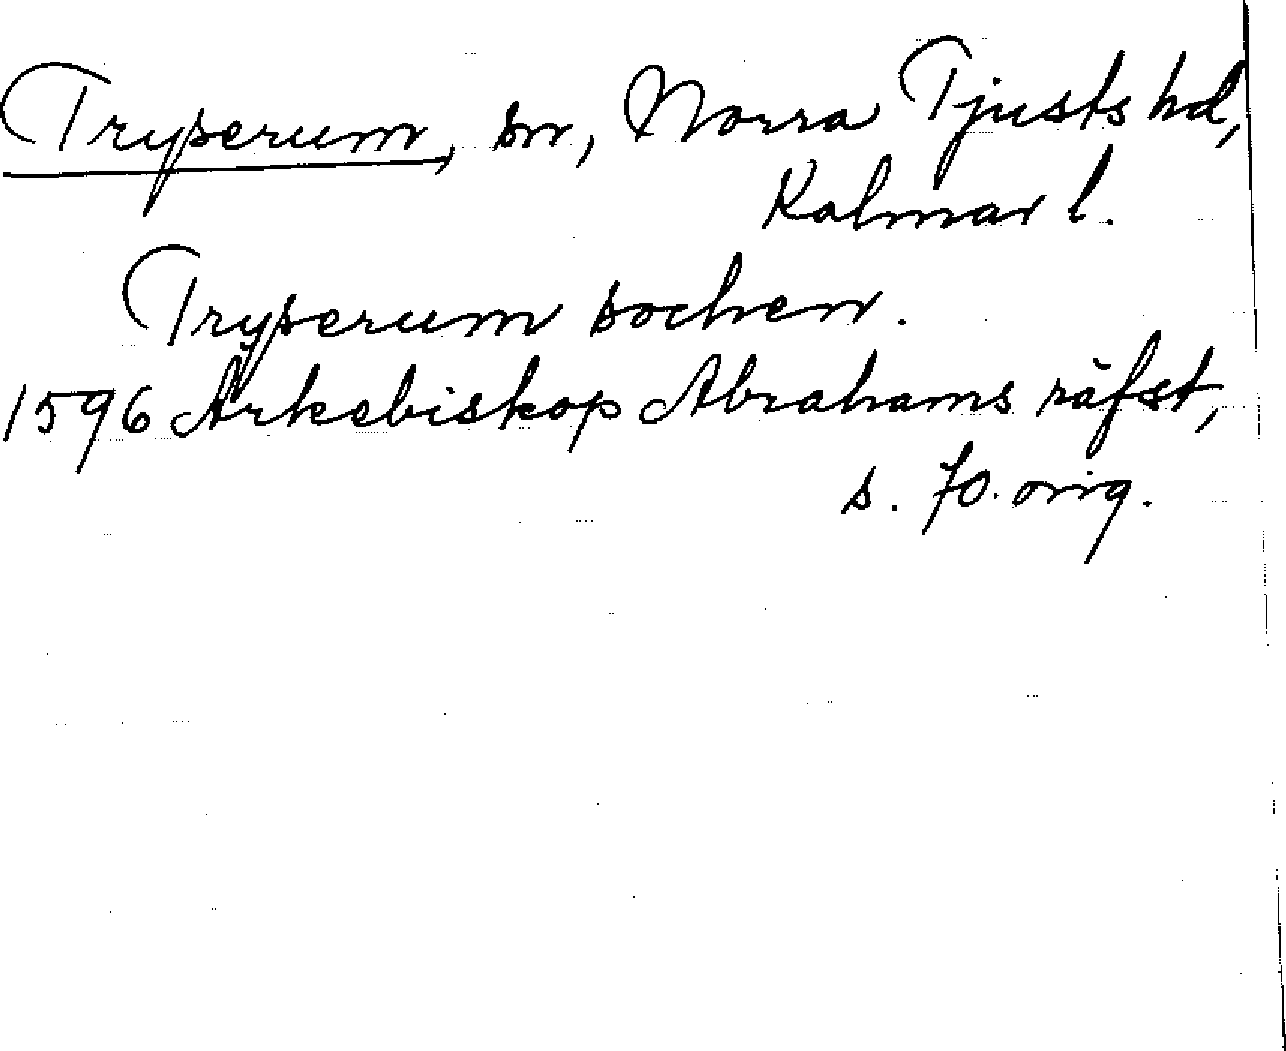 Tryserum, sn, Norra Tjusts hd,
Kalmar l.
Tryserum sochen.
1596 Ärkebiskop Abrahams räfst,
s. 70. orig.